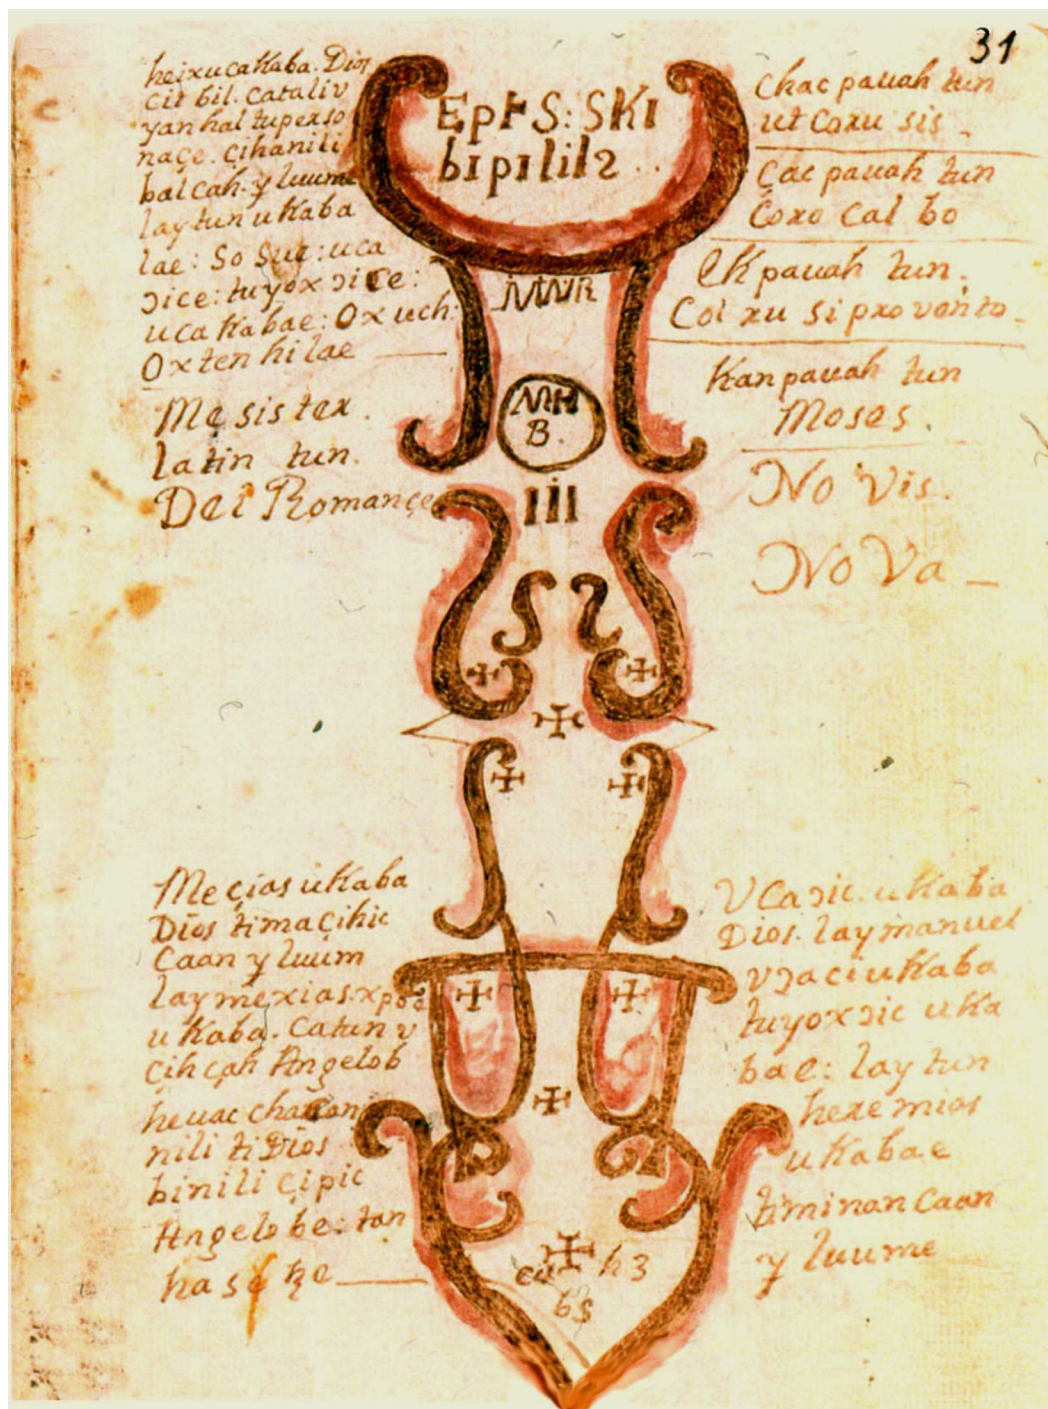 31
heixucakaba. Dios
cit bil. cataliv
yanhal tuperso
naçe. çihanili
balcah. y luume
laytun ukaba
lae: So Sue: uca
ɔice: tuyox ɔice:
uca kabae: Ox uch:
Oxten hi lae
Mesistex.
latin tun.
Dei Romançe
EptS: SKI
bipilils
MH
B.
III
Chac pauah tun
ut Coxu sis
Çac pauah tun
Coxo Cal bo
Ek pauah tun.
Coi xu si provento
Kan pauah tun
Moses.
No vis.
No Va
Meçias ukaba
Dios timaçihic
Caan y luum
lay mexias. xpoe
u kaba. Catun v
çihçah Angelob
heuac
nili ti Dios
binili çipic
Angelobe: tan
VCaɔic. ukaba
Dios. laymanuel
vɔaciukaba
tuyoxɔic uka
bae: lay tun
heremios
ukabae
timinan Caan
y luume